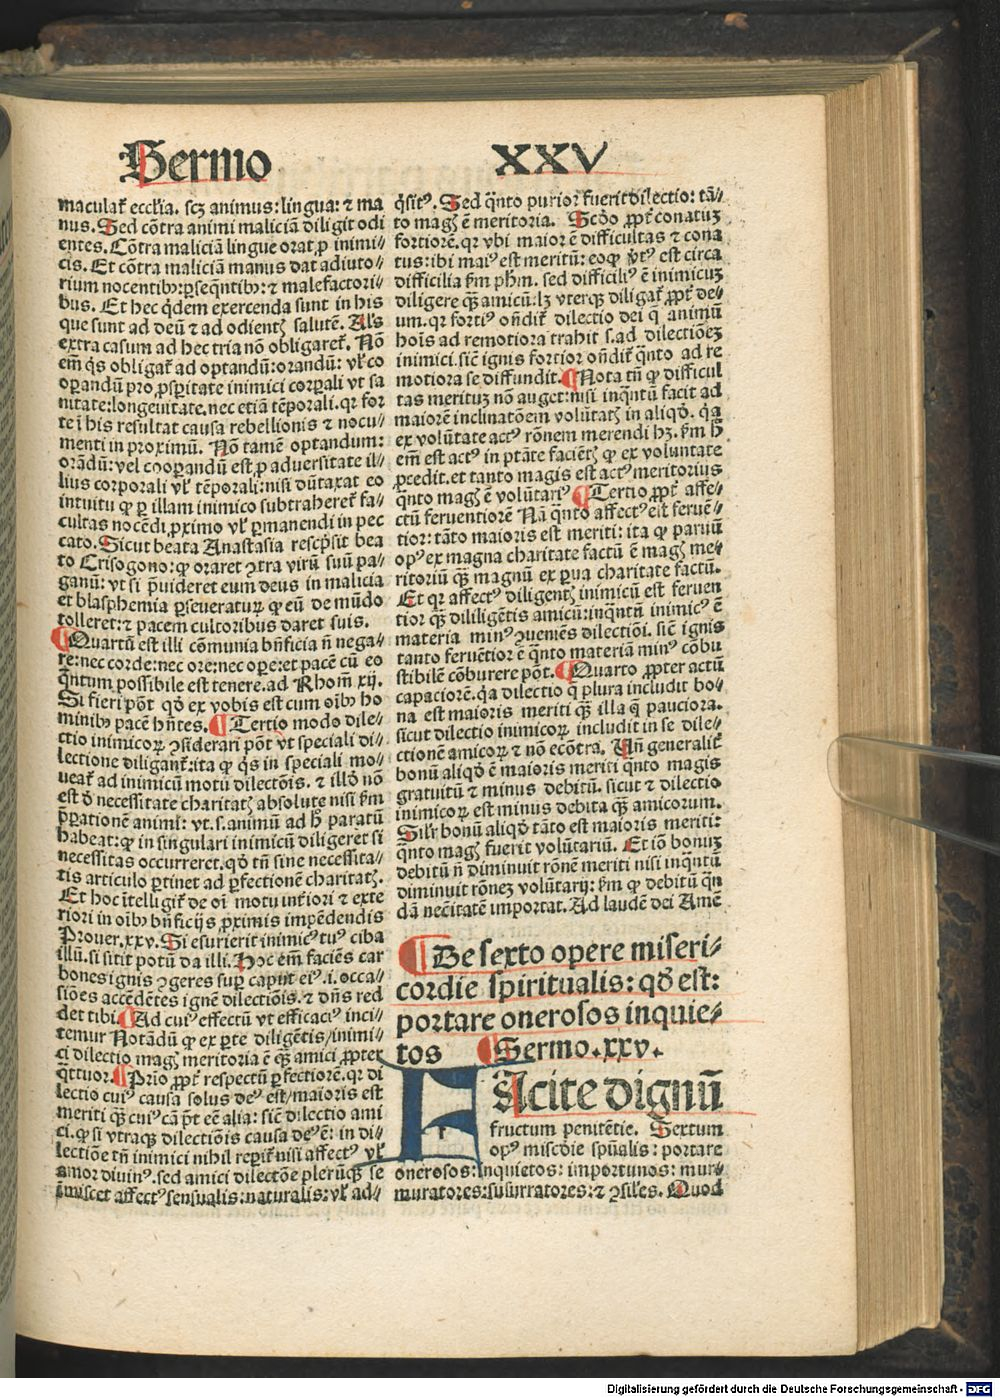 Sermo
XXV
maculat᷑ eccl'ia. scꝫ animus: lingua: ⁊ ma
nus. Sed cōtra animi maliciā diligit odi
entes. Cōtra maliciā lingue orat ꝓ inimi⸗
cis. Et cōtra maliciā manus dat adiuto⸗
rium nocentibꝰ: ꝑseq̄ntibꝰ: ⁊ malefactori⸗
bus. Et hec q̇dem exercenda sunt in his
que sunt ad deū ⁊ ad odientꝭ salutē. Al's
extra casum ad hec tria nō obligaret᷑. Nō
em̄ q̇s obligat᷑ ad optandū: orandū: vl' co
oꝑandū pro ꝓsꝑitate inimici corꝑali vt sa
nitate: longeuitate. nec etiā tēporali. qꝛ for
te ī his resultat causa rebellionis ⁊ nocu⸗
menti in proximū. Nō tamē optandum:
orādū: vel cooꝑandū est ꝓ aduersitate il⸗
lius corporali vl' tēporali: nisi dūtaxat eo
intuitu ꝙ ꝑ illam inimico subtraheret᷑ fa⸗
cultas nocēdi ꝓximo vl' ꝑmanendi in pec
cato. Sicut beata Anastasia rescp̄sit bea
to Crisogono: ꝙ oraret ꝯtra virū suū pa⸗
ganū: vt si p̄uideret eum deus in malicia
et blasphemia ꝑseueraturꝰ ꝙ eū de mūdo
tolleret: ⁊ pacem cultoribus daret suis.
¶ Quartū est illi cōmunia bn̄ficia n̄ nega⸗
re: nec corde: nec ore: nec ope: et pacē cū eo
q̄ntum possibile est tenere. ad Rhom̄ xij.
Si fieri pōt qd̄ ex vobis est cum oībꝰ ho
minibꝰ pacē hn̄tes. ¶ Tertio modo dile⸗
ctio inimicoꝝ ꝯsiderari pōt vt speciali di⸗
lectione diligant᷑: ita ꝙ q̇s in speciali mo⸗
ueat᷑ ad inimicū motu dilectōis. ⁊ illd̄ nō
est d̄ necessitate charitatꝭ absolute nisi ẜm
p̄ꝑationē animi: vt. s. animū ad h̄ paratū
habeat: ꝙ in singulari inimicū diligeret si
necessitas occurreret. qd̄ tn̄ sine necessita⸗
tis articulo ꝑtinet ad ꝑfectionē charitatꝭ.
Et hoc ītelligit᷑ de oī motu int᷑iori ⁊ exte
riori in oībꝰ bn̄ficijs ꝓximis impēdendis
Prouer. xxv. Si esurierit inimicꝰ tuꝰ ciba
illū. si sitit potū da illi. Hoc em̄ faciēs car
bones ignis ꝯgeres suꝑ caput eiꝰ. i. occa⸗
siōes accēdētes ignē dilectiōis. ⁊ dn̄s red
det tibi. ¶ Ad cuiꝰ effectū vt efficaciꝰ inci⸗
temur Notādū ꝙ ex ꝑte diligētis/ inimi⸗
ci dilectio magꝭ meritoria ē qꝫ̄ amici ꝓpter
q̇ttuor. ¶ Prio ꝓpt᷑ respectū ꝑfectiorē. qꝛ di
lectio cuiꝰ causa solus deꝰ est/ maioris est
meriti qꝫ̄ cuiꝰ cā p̄t eē alia: sic̄ dilectio ami
ci. ꝙ si vtraqꝫ dilectiōis causa deꝰ ē: in di⸗
lectiōe tn̄ inimici nihil reꝑit᷑ nisi affectꝰ vl'
amor diuinꝰ. sed amici dilectōe plerūqꝫ se
īmiscet affectꝰ sensualis: naturalis: vl' ad⸗
q̇sitꝰ. Sed q̄nto purior fuerit dilectio: tā⸗
to magꝭ ē meritoria. Scd̄o ꝓpt᷑ conatuꝫ
fortiorē. qꝛ vbi maior ē difficultas ⁊ cona
tus: ibi maiꝰ est meritū: eoqꝫ v̓tꝰ est circa
difficilia ẜm ph̄m. sed difficiliꝰ ē inimicuꝫ
diligere qꝫ̄ amicū: lꝫ vterqꝫ diligat᷑ ꝓpt᷑ de⸗
um. qꝛ fortiꝰ ondit᷑ dilectio dei q̄ animū
hoīs ad remotiora trahit s. ad dilectiōeꝫ
inimici. sic̄ ignis fortior ondit᷑ q̄nto ad re
motiora se diffundit. ¶ Nota tn̄ ꝙ difficul
tas merituꝫ nō auget: nisi inq̄ntū facit ad
maiorē inclinatōem volūtatꝭ in aliqd̄. q̇a
ex volūtate actꝰ rōnem merendi hꝫ. ẜm h̄
em̄ est actꝰ in ptāte faciētꝭ ꝙ ex voluntate
ꝓcedit. et tanto magis est actꝰ meritorius
q̄nto magꝭ ē volūtariꝰ ¶ Tertio ꝓpt᷑ affe⸗
ctū feruentiorē Nā q̄nto affectꝰ est feruē⸗
tior: tāto maioris est meriti: ita ꝙ paruū
opꝰ ex magna charitate factū ē magꝭ me⸗
ritoriū qꝫ̄ magnū ex ꝑua charitate factū.
Et qꝛ affectꝰ diligentꝭ inimicū est feruen
tior qꝫ̄ dililigētis amicū: inq̄ntū inimicꝰ ē
materia minꝰ ꝯueniēs dilectiōi. sic̄ ignis
tanto feruētior ē q̄nto materiā minꝰ cōbu
stibilē cōburere pōt. ¶ Quarto ꝓpter actū
capaciorē. q̇a dilectio q̄ plura includit bo⸗
na est maioris meriti qꝫ̄ illa q̄ pauciora.
sicut dilectio inimicoꝝ includit in se dile⸗
ctionē amicoꝝ ⁊ nō ecōtra. Un̄ generalit᷑
bonū aliqd̄ ē maioris meriti q̄nto magis
gratuitū ⁊ minus debitū. sicut ⁊ dilectio
inimicoꝝ est minus debita qꝫ̄ amicorum.
Silr̄ bonū aliqd̄ tāto est maioris meriti:
q̄nto magꝭ fuerit volūtariū. Et iō bonuꝫ
debitū n̄ diminuit rōnē meriti nisi inq̄ntū
diminuit rōneꝫ volūtarij: ẜm ꝙ debitū q̄n
dā nec̄itatē importat. Ad laudē dei Amē
¶ De sexto opere miseri⸗
cordie spiritualis: qd̄ est:
portare onerosos inquie⸗
tos ¶ Sermo. xxv.
FAcite dignū
fructum penitētie. Sextum
opꝰ miscd̄ie spūalis: portare
onerosos: inquietos: importunos: mur⸗
muratores: susurratores: ⁊ ꝯsiles. Quod
Digitalisierung gefördert durch die Deutsche Forschungsgemeinschaft - DFG